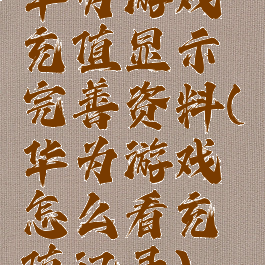 华为游戏
充值显示
完善资料(
华为游戏
怎么看充
值记录)